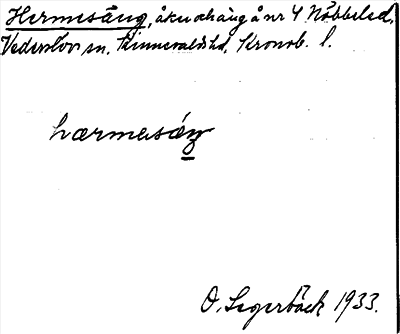 Hermesäng, åker och äng å nr 4 Nöbbeled,
Vederslöv sn, Kinnevalds hd, Kronob. l.
hærmesáŋ
O. Segerbäck 1933.